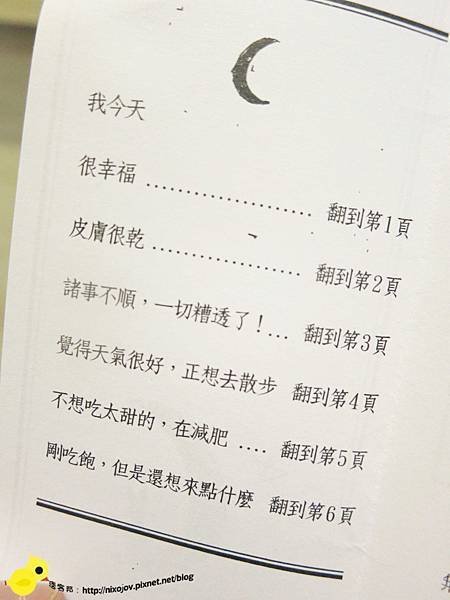 我今天
很幸福 .................... 翻到第1頁
皮膚很乾 ................... 翻到第2頁
諸事不順，一切糟透了！... 翻到第3頁
覺得天氣很好，正想去散步 翻到第4頁
不想吃太甜的，在減肥 .... 翻到第5頁
剛吃飽，但是還想來點什麼 翻到第6頁
痞客邦：http://nixojov.pixnet.net/blog